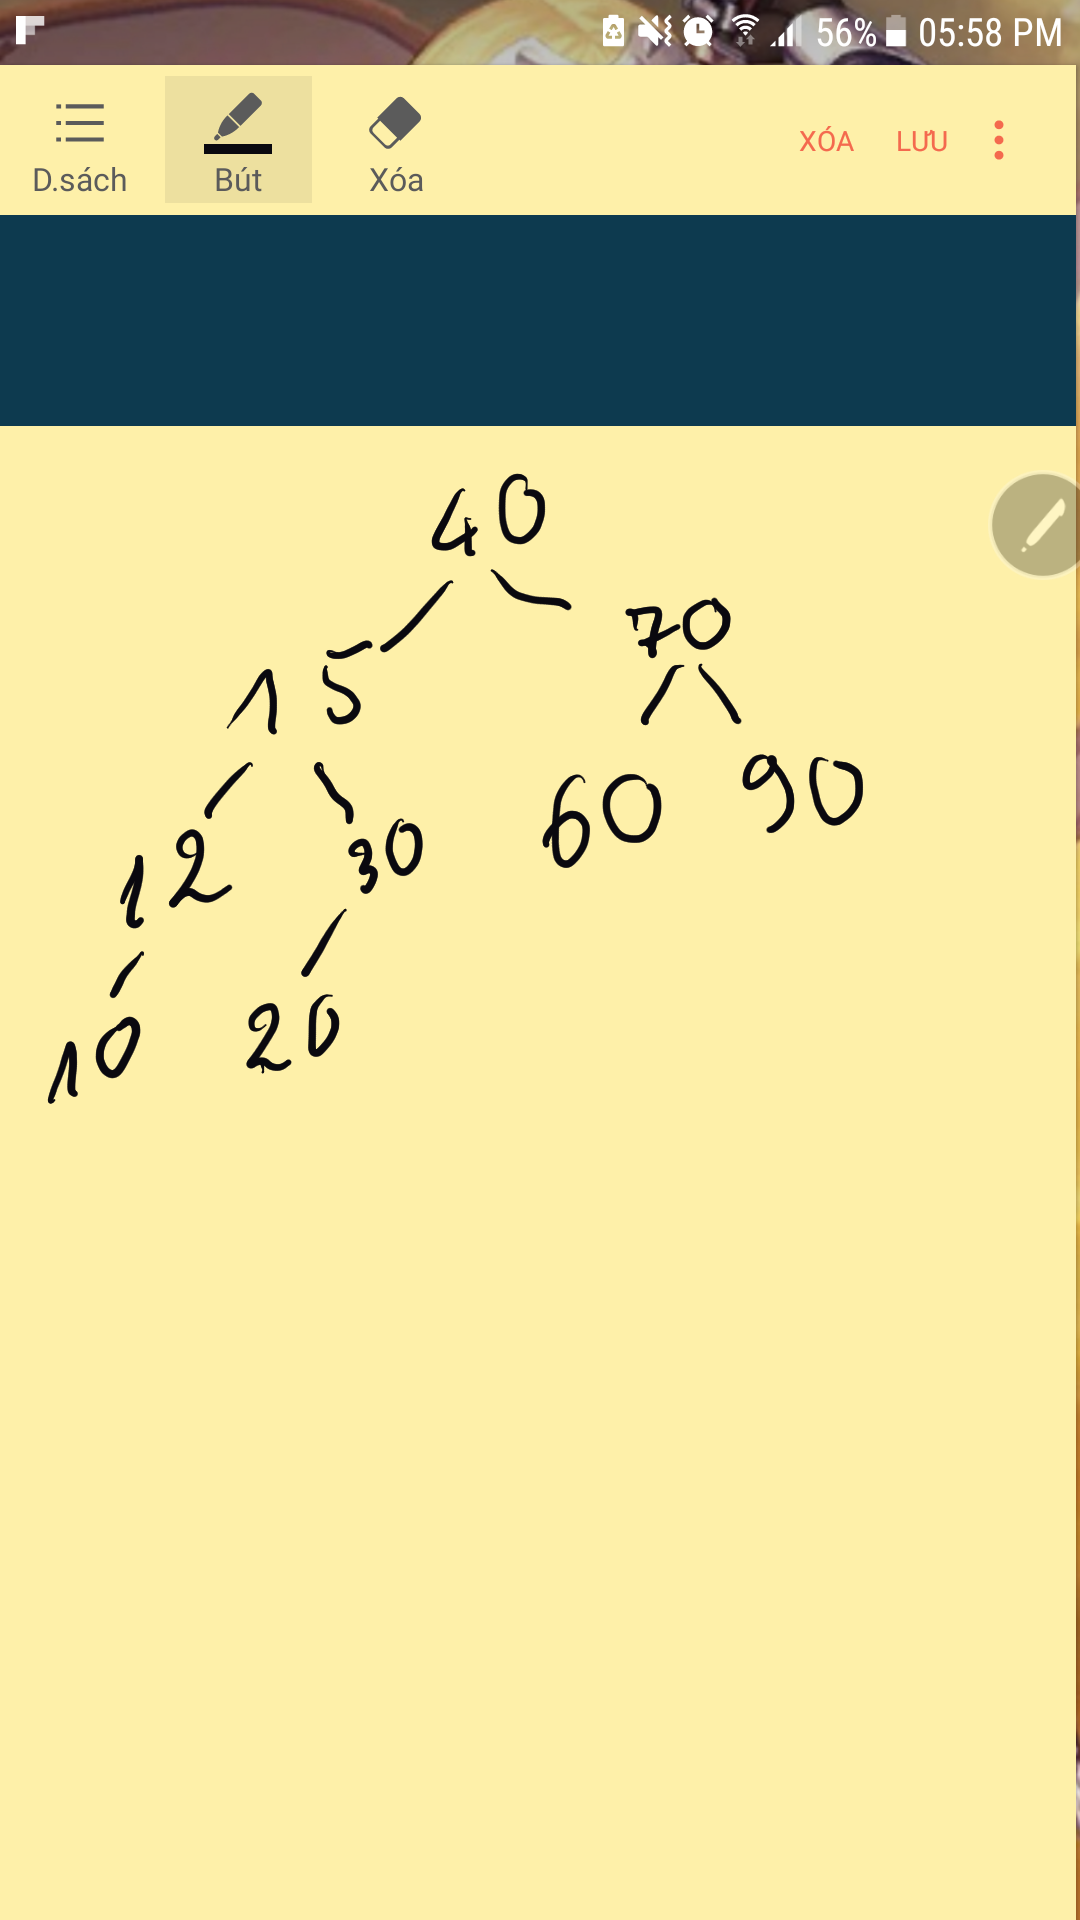 56% 05:58 PM
D.sách Bút Xóa XÓA LƯU
40
15 70
12 30 60 90
10 20